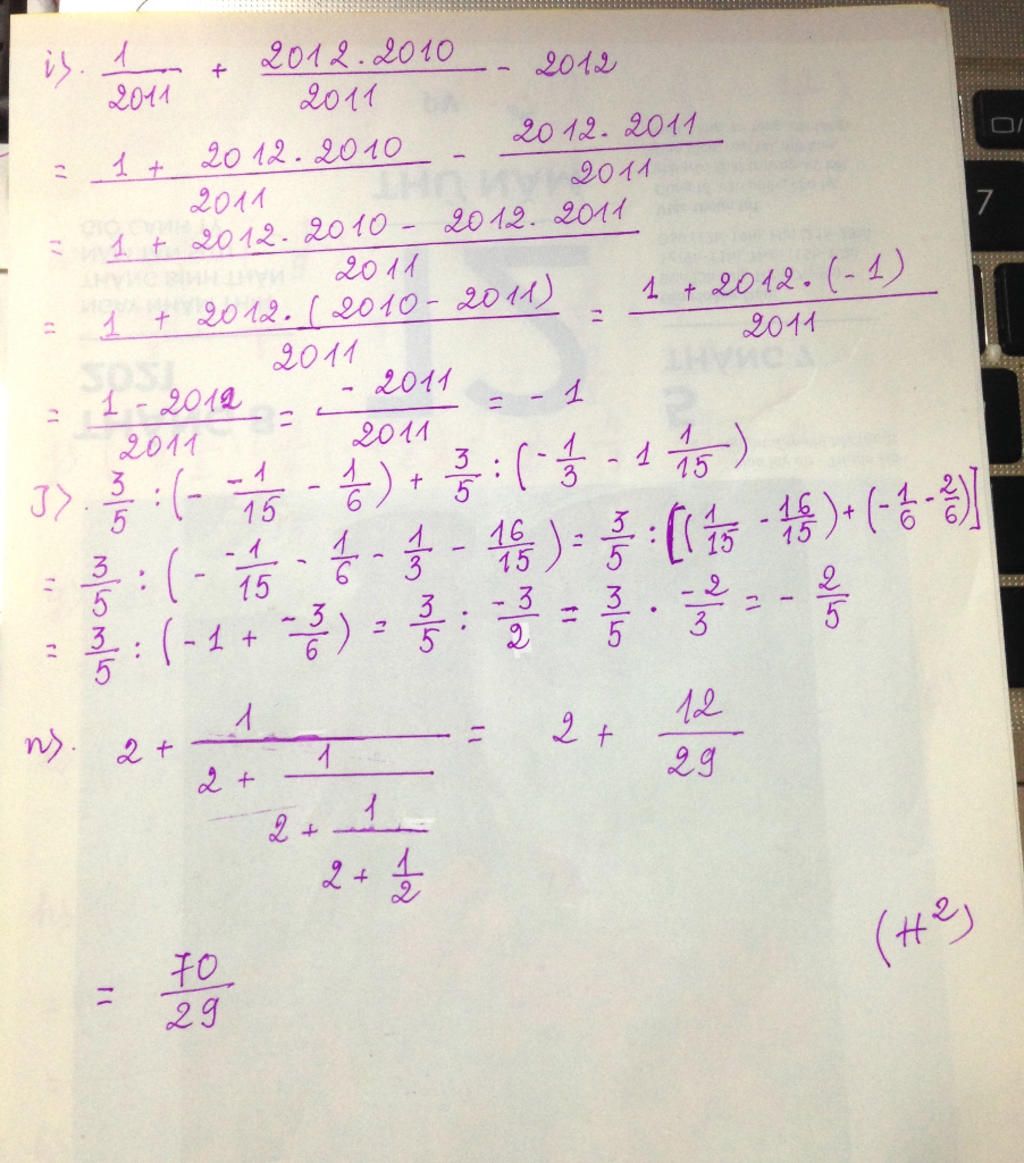 i). 1/2011 + 2012.2010/2011 - 2012
= (1 + 2012.2010)/2011 - 2012.2011/2011
= (1 + 2012.2010 - 2012.2011)/2011
= (1 + 2012.(2010-2011))/2011 = (1 + 2012.(-1))/2011
= (1-2012)/2011 = -2011/2011 = -1
J). 3/5 : (- -1/15 - 1/6) + 3/5 : (-1/3 - 1 1/15)
= 3/5 : (- -1/15 - 1/6 - 1/3 - 16/15) = 3/5 : [(1/15 - 16/15) + (-1/6 - 2/6)]
= 3/5 : (-1 + -3/6) = 3/5 : -3/2 = 3/5 . -2/3 = - 2/5
n). 2 + 1/(2 + 1/(2 + 1/(2 + 1/2))) = 2 + 12/29
(H²)
= 70/29
THÁNG 7
5
2021
THÁNG 8